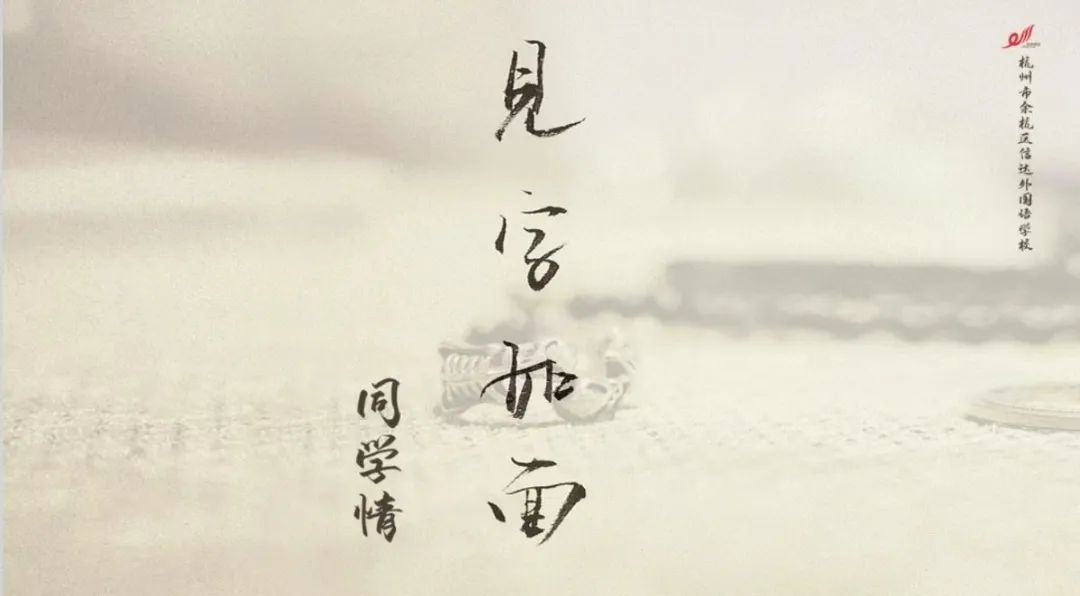 杭州市余杭区信达外国语学校
見字如面
同学情